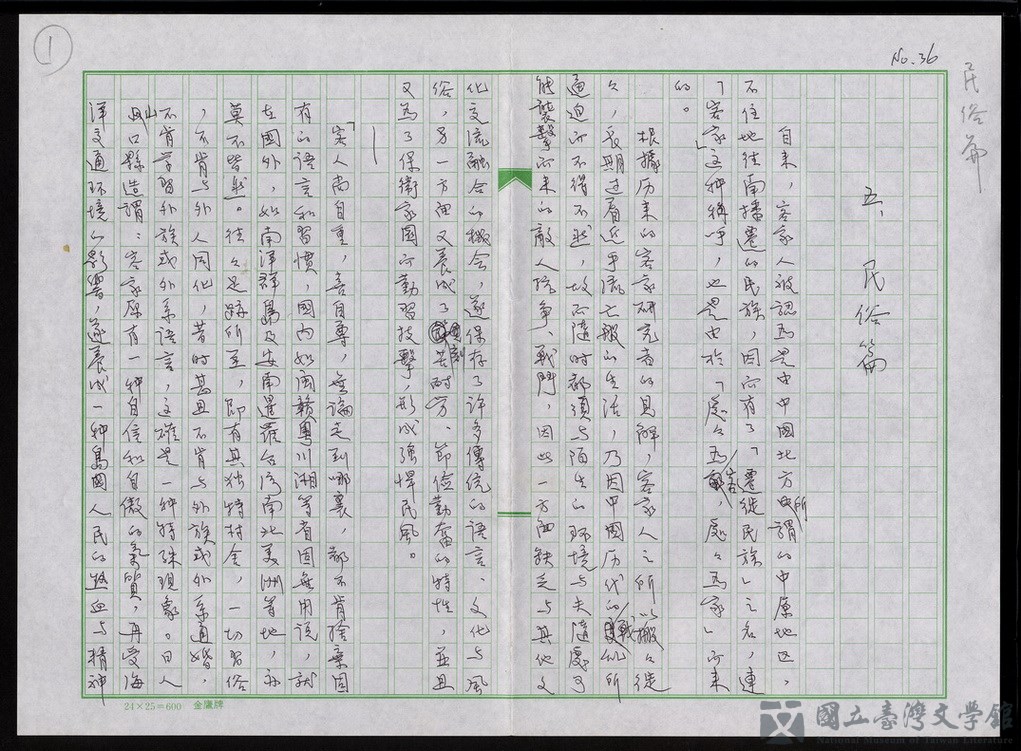 民俗篇
No. 36
1
五、民俗篇
自来，客家人被認為是由中國北方所謂的中原地区，
不住地往南播遷的民族，因而有了「遷徙民族」之名，連
「客家」这种稱呼，也是由於「處々為客，處々為家」而来
的。
根據历来的客家研究者的見解，客家人之所以搬々徙
々，長期过着近乎流亡般的生活，乃因中國历代的戰乱所
逼迫而不得不然，故而隨時都須与陌生的环境与夫隨處可
能襲擊而来的敵人抗爭、戰鬥，因此一方面缺乏与其他文
化交流融合的機会，遂保存了許多傳統的語言、文化与風
俗，另一方面又养成了刻苦耐劳、節儉勤奮的特性，並且
又為了保衛家園而勤習技擊，形成強悍民風。
「客人尚自重，善自尊，無論走到哪裏，都不肯捨棄固
有的語言和習慣，國内如闽贛粵川湘等省固無用說，就
在國外，如南洋群島及安南暹羅台湾南北美洲等地，亦
莫不皆然。往々足跡所至，即有其独特村舍，一切習俗
，不肯与外人同化，昔時甚且不肯与外族或外系通婚，
不肯学習外族或外系語言，这確是一种特殊現象。日人
山口縣造謂：客家原有一种自信和自傲的氣質，再受海
洋交通环境的影響，遂养成一种島國人民的熱血与精神
24×25=600 金鷹牌
國立臺灣文學館
National Museum of Taiwan Literature